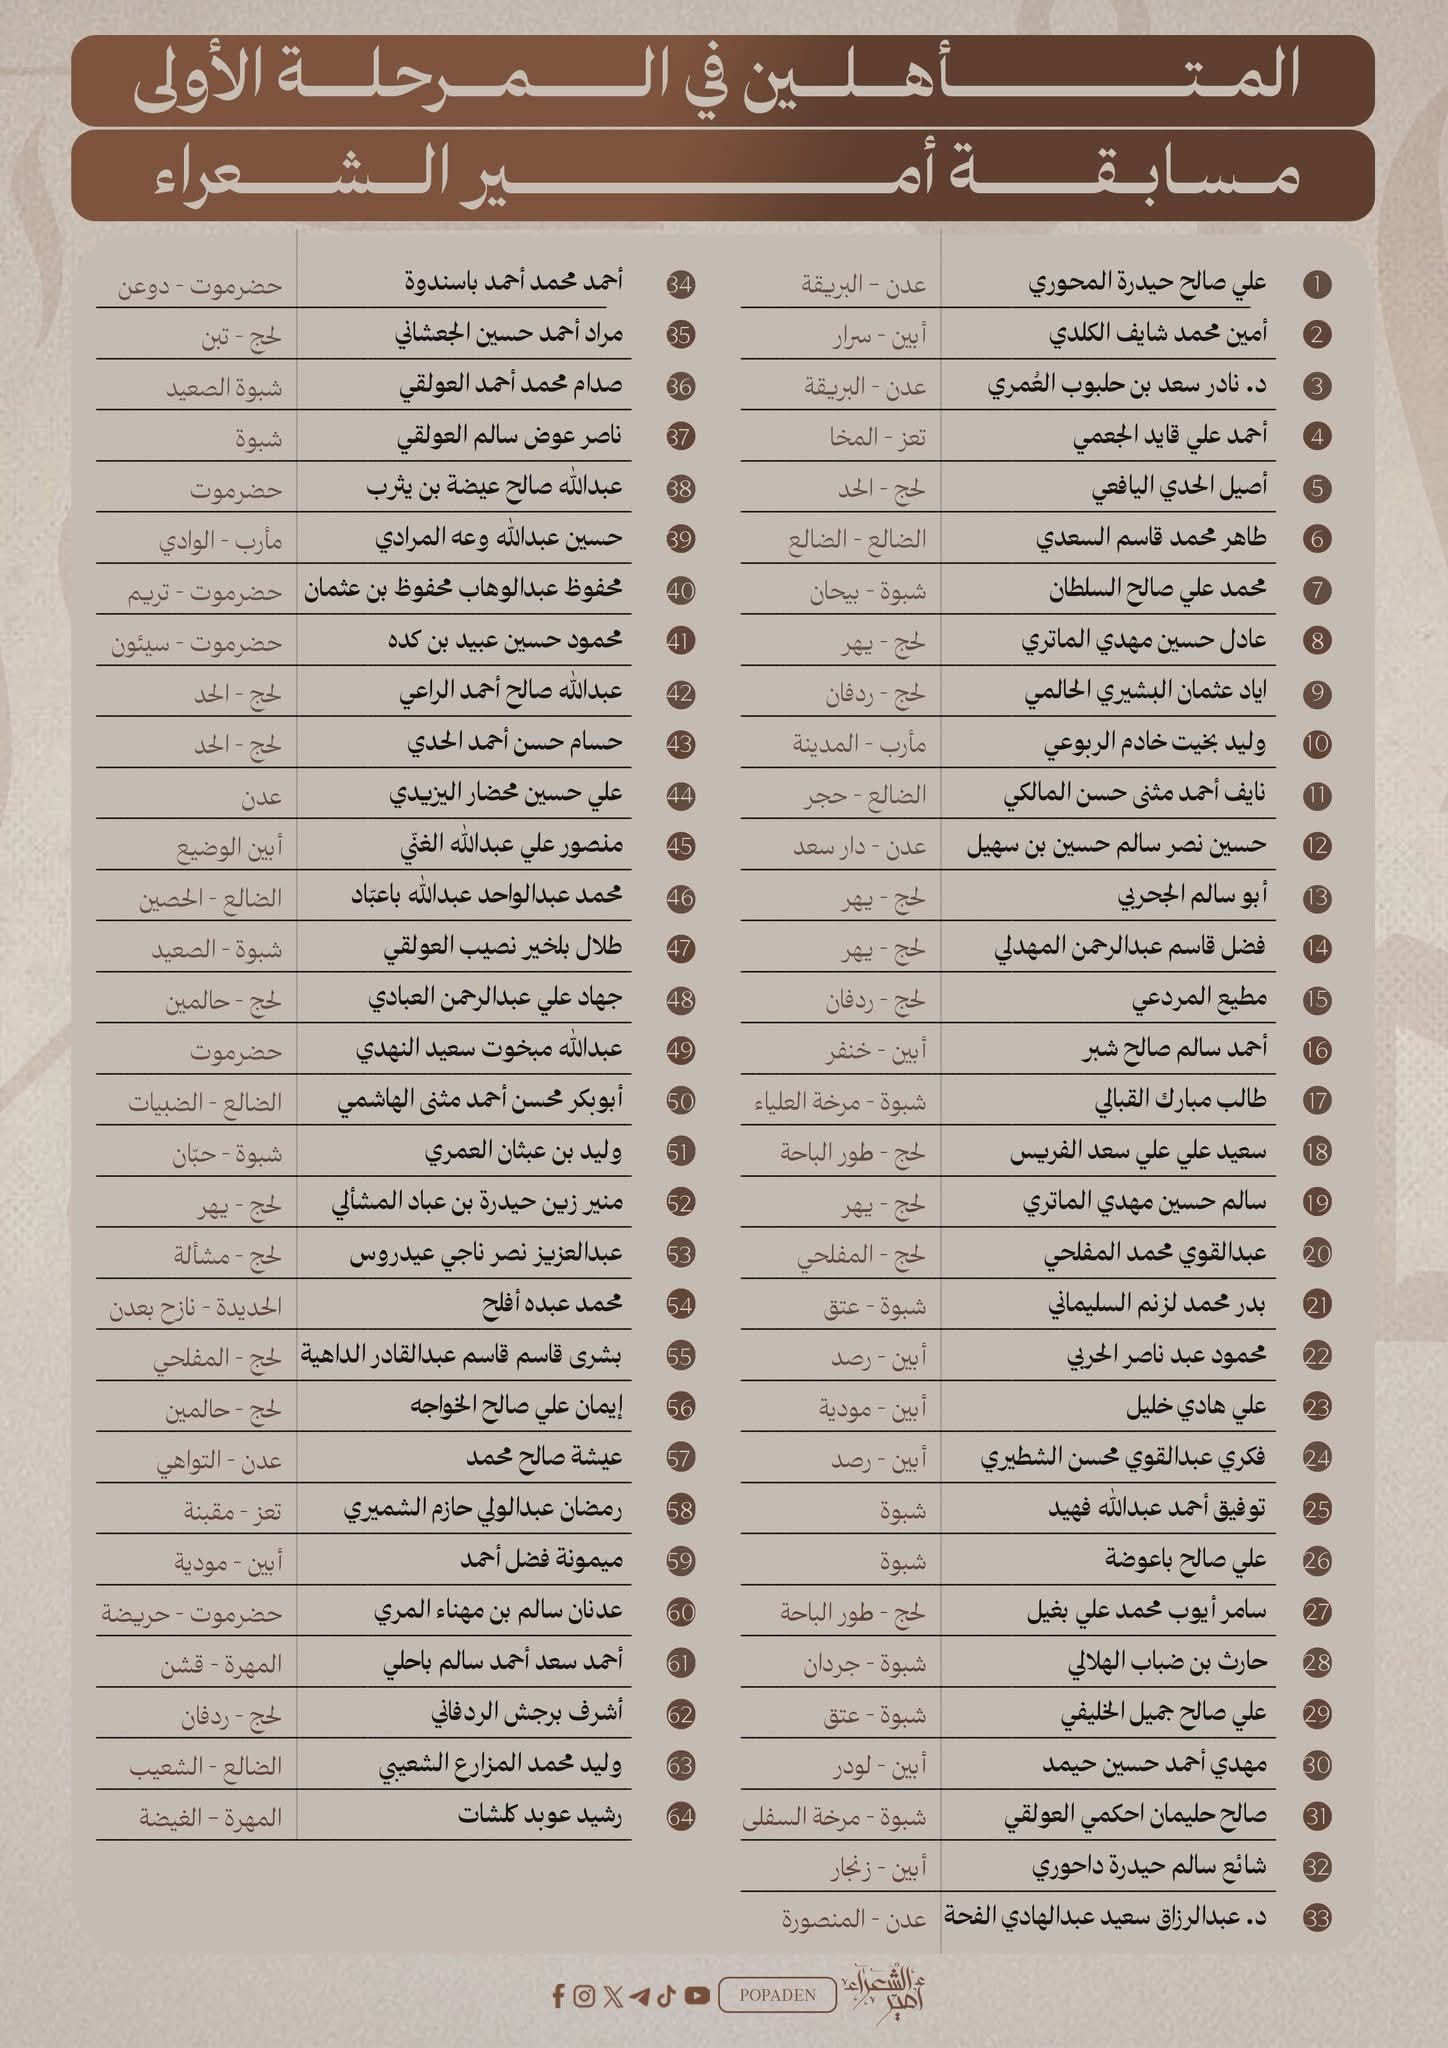 المتأهلين في المرحلة الأولى
مسابقة أمير الشعراء
1 علي صالح حيدرة المحوري عدن - البريقة
2 أمين محمد شايف الكلدي أبين - سرار
3 د. نادر سعد بن حلبوب العُمري عدن - البريقة
4 أحمد علي قايد الجعمي تعز - المخا
5 أصيل الحدي اليافعي لحج - الحد
6 طاهر محمد قاسم السعدي الضالع - الضالع
7 محمد علي صالح السلطان شبوة - بيحان
8 عادل حسين مهدي الماتري لحج - يهر
9 اياد عثمان البشيري الحالمي لحج - ردفان
10 وليد بخيت خادم الربوعي مأرب - المدينة
11 نايف أحمد مثنى حسن المالكي الضالع - حجر
12 حسين نصر سالم حسين بن سهيل عدن - دار سعد
13 أبو سالم الجحربي لحج - يهر
14 فضل قاسم عبدالرحمن المهدلي لحج - يهر
15 مطيع المردعي لحج - ردفان
16 أحمد سالم صالح شبر أبين - خنفر
17 طالب مبارك القبالي شبوة - مرخة العلياء
18 سعيد علي علي سعد الفريس لحج - طور الباحة
19 سالم حسين مهدي الماتري لحج - يهر
20 عبدالقوي محمد المفلحي لحج - المفلحي
21 بدر محمد لزنم السليماني شبوة - عتق
22 محمود عبد ناصر الحربي أبين - رصد
23 علي هادي خليل أبين - مودية
24 فكري عبدالقوي محسن الشطيري أبين - رصد
25 توفيق أحمد عبدالله فهيد شبوة
26 علي صالح باعوضة شبوة
27 سامر أيوب محمد علي بغيل لحج - طور الباحة
28 حارث بن ضباب الهلالي شبوة - جردان
29 علي صالح جميل الخليفي شبوة - عتق
30 مهدي أحمد حسين حيمد أبين - لودر
31 صالح حليمان احكمي العولقي شبوة - مرخة السفلى
32 شائع سالم حيدرة داحوري أبين - زنجار
33 د. عبدالرزاق سعيد عبدالهادي الفحة عدن - المنصورة
34 أحمد محمد أحمد باسندوة حضرموت - دوعن
35 مراد أحمد حسين الجعشاني لحج - تبن
36 صدام محمد أحمد العولقي شبوة الصعيد
37 ناصر عوض سالم العولقي شبوة
38 عبدالله صالح عيضة بن يثرب حضرموت
39 حسين عبدالله وعه المرادي مأرب - الوادي
40 محفوظ عبدالوهاب محفوظ بن عثمان حضرموت - تريم
41 محمود حسين عبيد بن كده حضرموت - سيئون
42 عبدالله صالح أحمد الراعي لحج - الحد
43 حسام حسن أحمد الحدي لحج - الحد
44 علي حسين محضار اليزيدي عدن
45 منصور علي عبدالله الغنّي أبين الوضيع
46 محمد عبدالواحد عبدالله باعبّاد الضالع - الحصين
47 طلال بلخير نصيب العولقي شبوة - الصعيد
48 جهاد علي عبدالرحمن العبادي لحج - حالمين
49 عبدالله مبخوت سعيد النهدي حضرموت
50 أبوبكر محسن أحمد مثنى الهاشمي الضالع - الضبيات
51 وليد بن عبثان العمري شبوة - حبّان
52 منير زين حيدرة بن عباد المشألي لحج - يهر
53 عبدالعزيز نصر ناجي عيدروس لحج - مشألة
54 محمد عبده أفلح الحديدة - نازح بعدن
55 بشرى قاسم قاسم عبدالقادر الداهية لحج - المفلحي
56 إيمان علي صالح الخواجه لحج - حالمين
57 عيشة صالح محمد عدن - التواهي
58 رمضان عبدالولي حازم الشميري تعز - مقبنة
59 ميمونة فضل أحمد أبين - مودية
60 عدنان سالم بن مهناء المري حضرموت - حريضة
61 أحمد سعد أحمد سالم باحلي المهرة - قشن
62 أشرف برجش الردفاني لحج - ردفان
63 وليد محمد المزارع الشعيبي الضالع - الشعيب
64 رشيد عوبد كلشات المهرة - الغيضة
أمير الشعراء
POPADEN